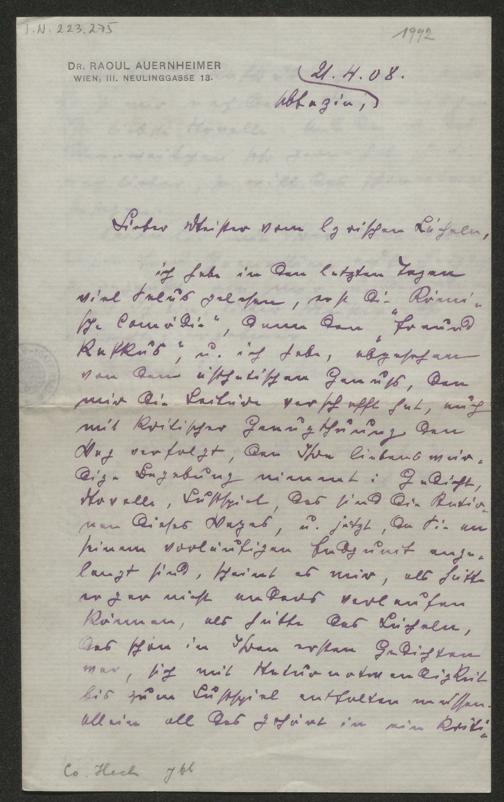 I.N. 223.275
1992
DR. RAOUL AUERNHEIMER
WIEN, III. NEULINGGASSE 13.
21.4.08.
Abbazia,
Lieber Meister vom lyrischen Lächeln,
ich habe in den letzten Tagen
viel Salus gelesen, erst die "Römi-
sche Comödie", dann den "Freund
Kukkus", u. ich habe, abgesehen
von dem ästhetischen Genuß, den
mir die Lektüre verschafft hat, auch
mit kritischer Genugthuung den
Weg verfolgt, den Ihre liebenswür-
dige Begabung nimmt: Gedicht,
Novelle, Lustspiel, das sind die Statio-
nen dieses Weges, u. jetzt, da Sie an
seinem vorläufigen Endpunkt ange-
langt sind, scheint es mir, als hätte
er gar nicht anders verlaufen
können, als hätte das Lächeln,
das schon in Ihren ersten Gedichten
war, sich mit Naturnotwendigkeit
bis zum Lustspiel entfalten müssen.
Allein all das gehört in ein kriti-